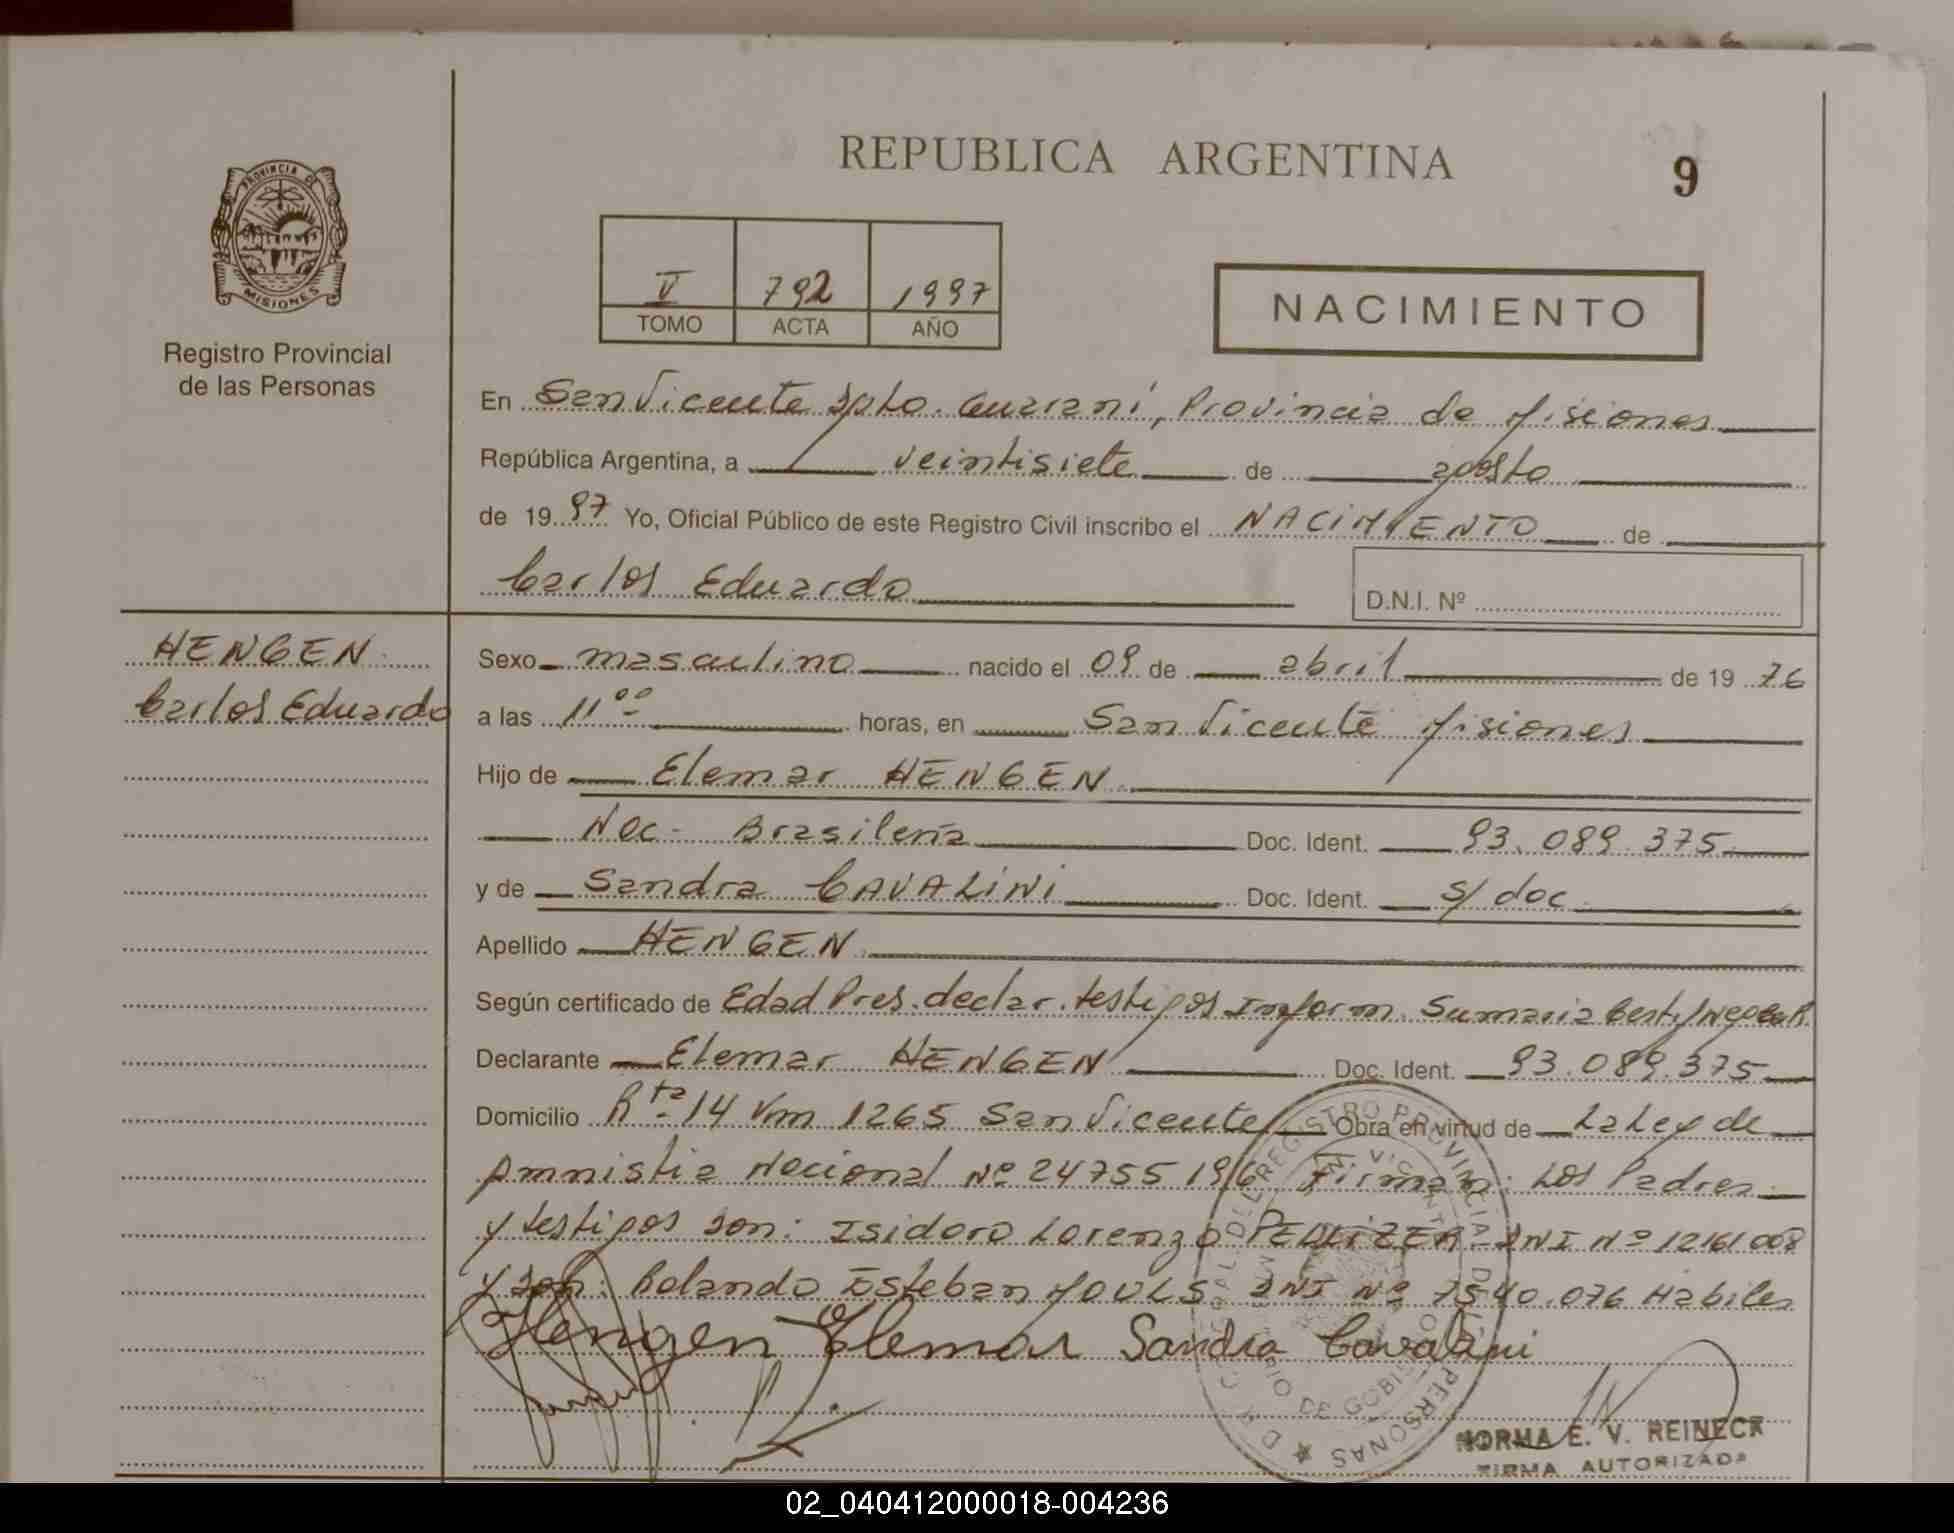 REPUBLICA ARGENTINA
9
PROVINCIA DE
MISIONES
Registro Provincial
de las Personas
V 792 1997
TOMO ACTA AÑO
NACIMIENTO
En San Vicente Dpto. Guaraní, Provincia de Misiones
República Argentina, a veintisiete de agosto
de 1997 Yo, Oficial Público de este Registro Civil inscribo el NACIMIENTO de
Carlos Eduardo
D.N.I. Nº
HENGEN
Carlos Eduardo
Sexo masculino nacido el 09 de abril de 1976
a las 11⁰⁰ horas, en San Vicente Misiones
Hijo de Elemar HENGEN
Nac. Brasileña Doc. Ident. 93.089.375
y de Sandra CAVALINI Doc. Ident. s/doc
Apellido HENGEN
Según certificado de Edad Pres. declar. testigos Inform. Sumaria
Declarante Elemar HENGEN Doc. Ident. 93.089.375
Domicilio Rta 14 Km 1265 San Vicente Obra en virtud de La Ley de
Amnistia Nacional Nº 24755 1996 Firman: Los Padres
y testigos Don: Isidoro Lorenzo DNI Nº 12161008
y Don: Rolando Esteban DNI Nº 7540.076 Habiles
Hengen Elemar Sandra Cavalini
NORMA E. V. REINECK
FIRMA AUTORIZADA
02_040412000018-004236